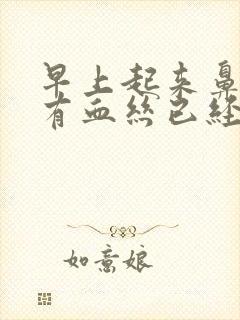 早上起来鼻
有血丝已经
如意娘